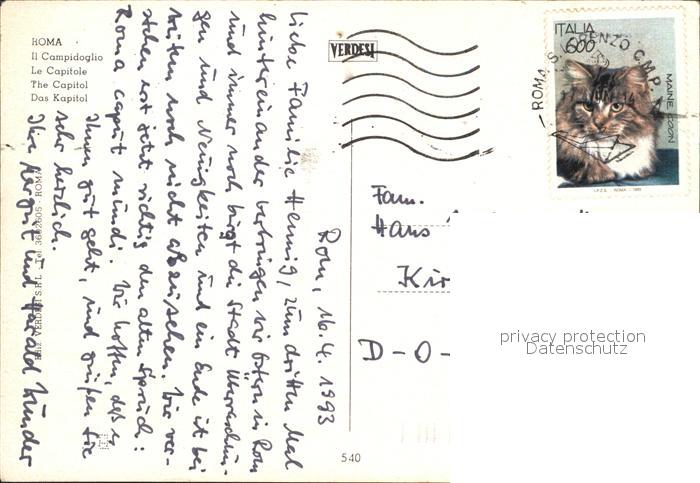 ROMA
Il Campidoglio
Le Capitole
The Capitol
Das Kapitol
VERDESI
ITALIA
600
MAINE COON
I.P.Z.S. ROMA 1993
ROMA S. LORENZO C.M.P.
Rom, 16.4.1993
Liebe Familie Hennig, zum dritten Mal
hintereinander verbringen wir Ostern in Rom
und immer noch birgt die Stadt Überraschun-
gen und Neuigkeiten und ein Ende ist bei
weitem noch nicht abzusehen. Wir ver-
stehen erst jetzt richtig den alten Spruch:
Roma caput mundi. Wir hoffen, daß es
Ihnen gut geht, und grüßen Sie
sehr herzlich.
Ihre Margrit und Harald Wunder
Fam.
Hans
Kir
D-O-
540
VERDESI S.R.L. - Tel 3662605 - ROMA
privacy protection
Datenschutz